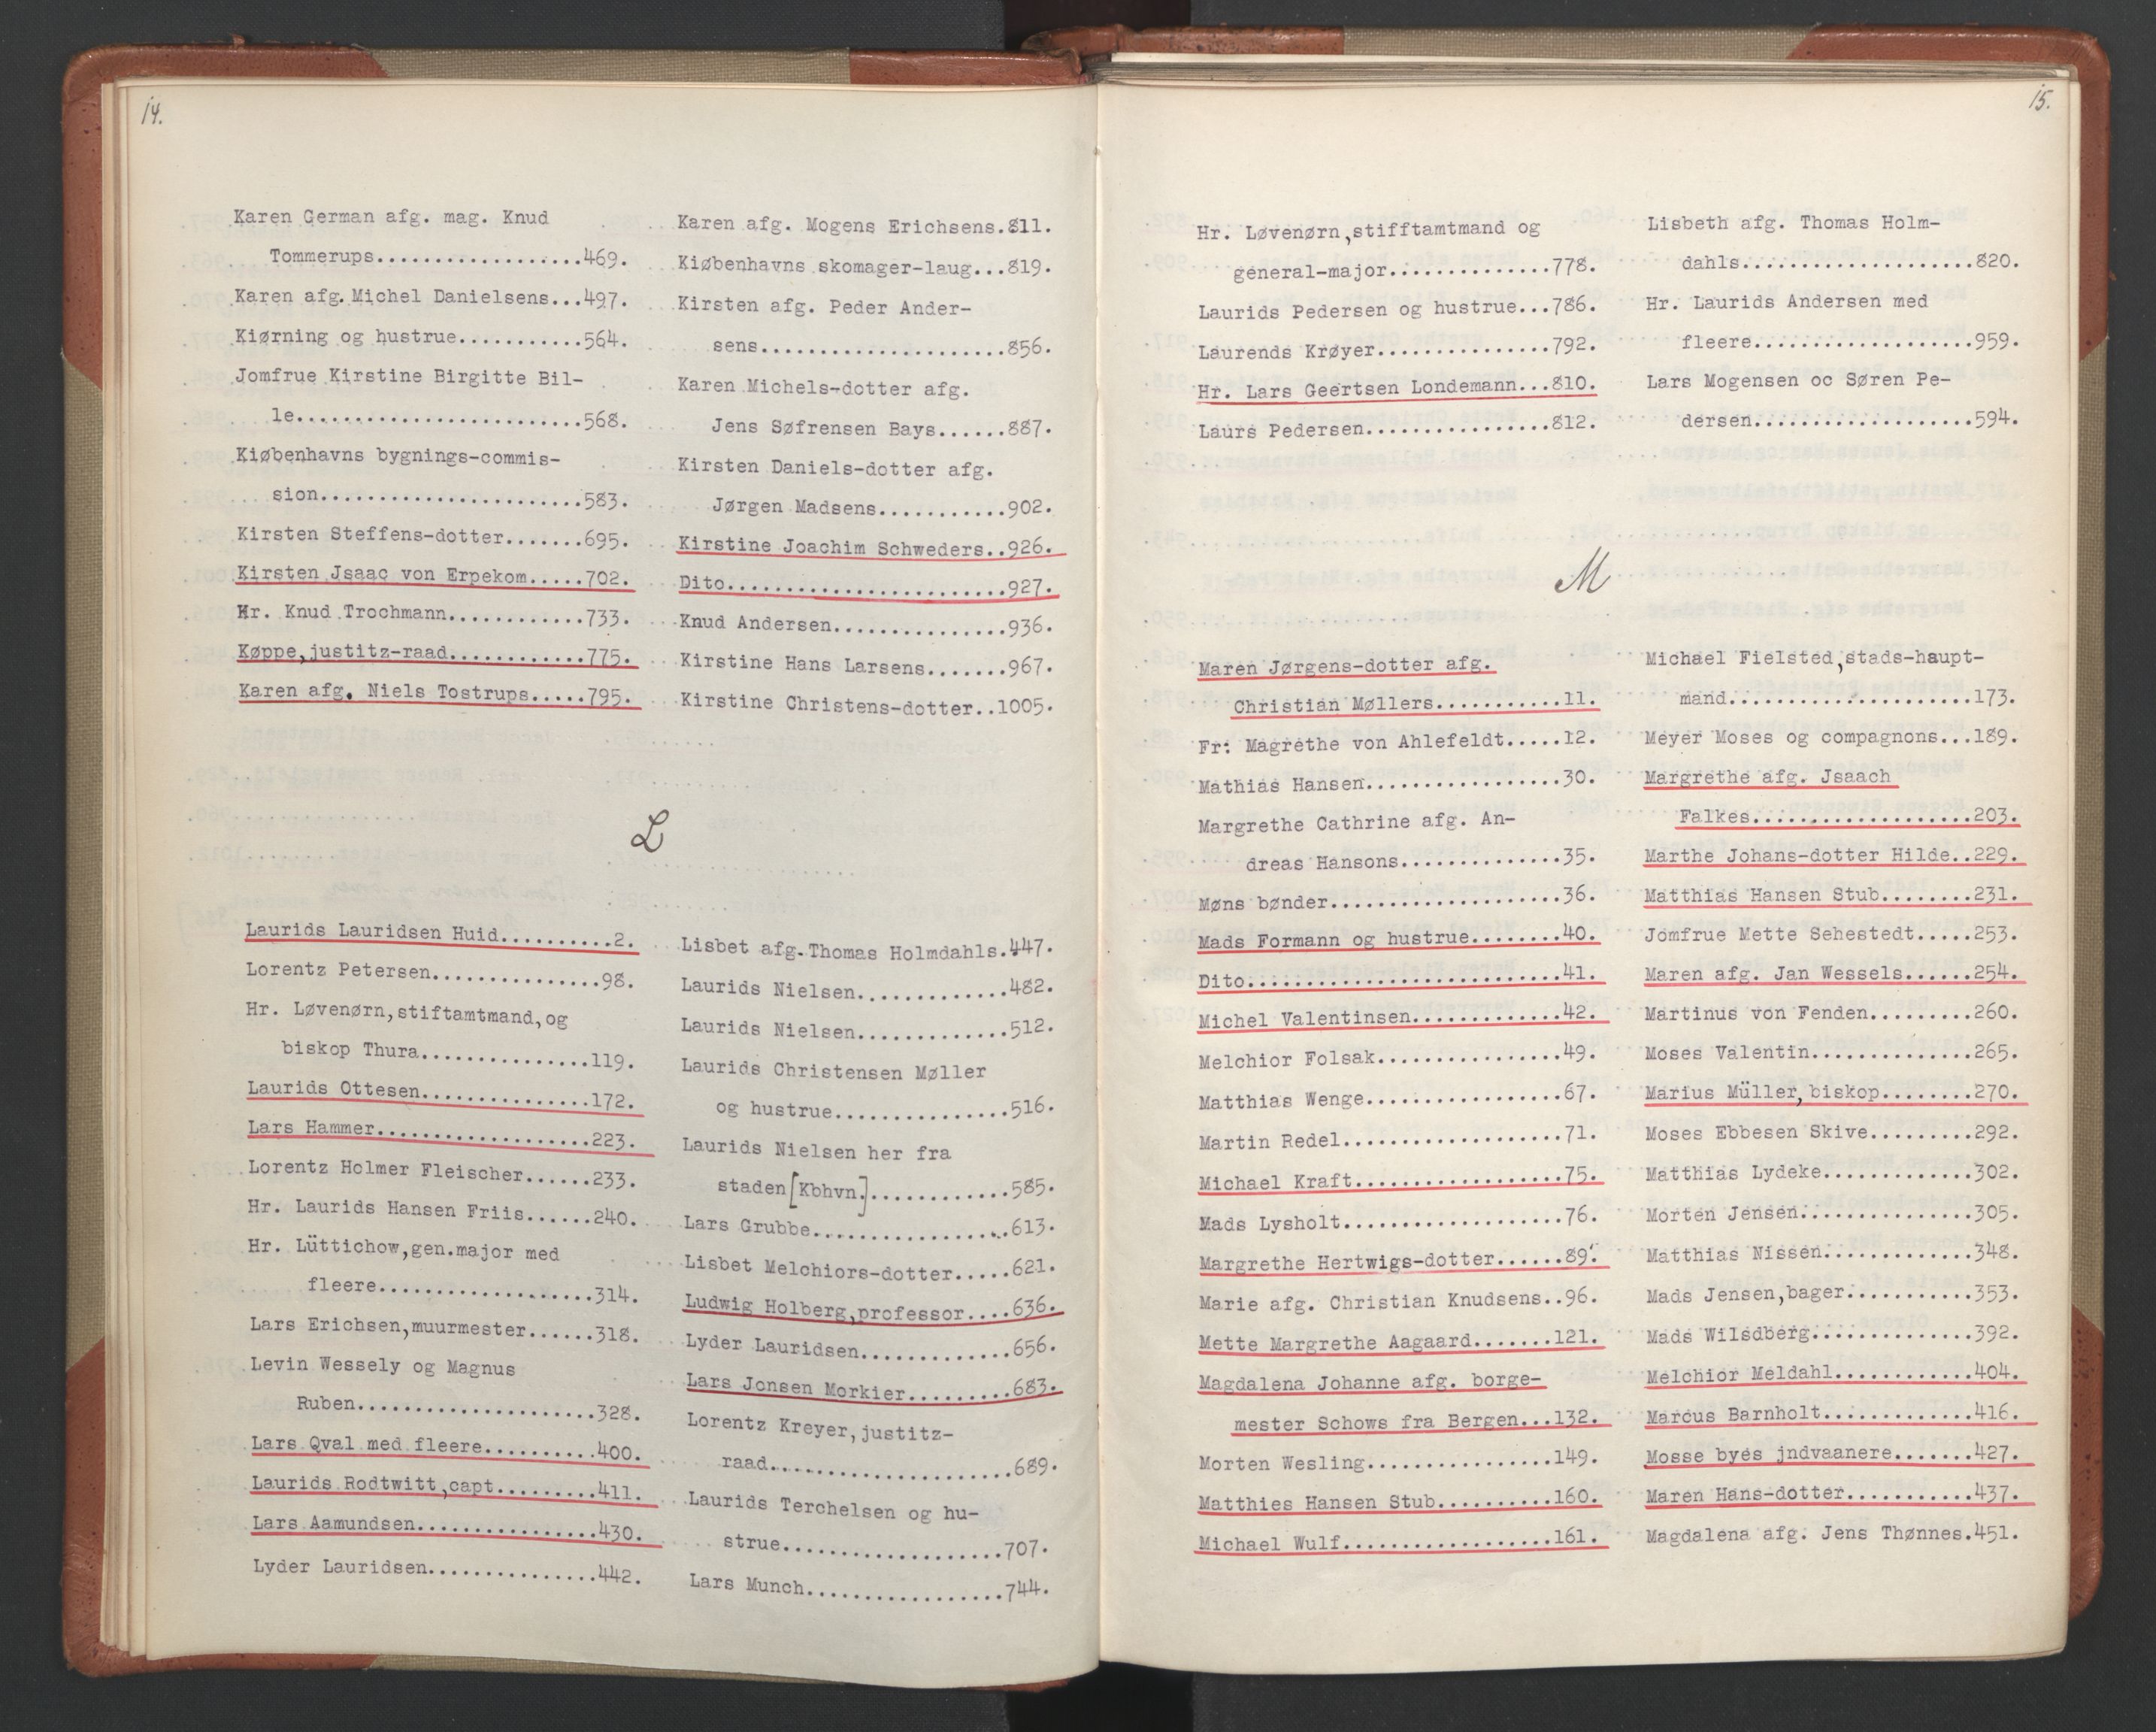 14.
Karen German afg. mag. Knud
Tommerups..................469.
Karen afg. Michel Danielsens...497.
Kiørning og hustrue...........564.
Jomfrue Kirstine Birgitte Bil-
le.........................568.
Kiøbenhavns bygnings-commis-
sion.......................583.
Kirsten Steffens-dotter.......695.
Kirsten Jsaac von Erpekom.....702.
Hr. Knud Trochmann............733.
Køppe, justitz-raad............775.
Karen afg. Niels Tostrups.....795.
Karen afg. Mogens Erichsens.811.
Kiøbenhavns skomager-laug...819.
Kirsten afg. Peder Ander-
sens......................856.
Karen Michels-dotter afg.
Jens Søfrensen Bays......887.
Kirsten Daniels-dotter afg.
Jørgen Madsens...........902.
Kirstine Joachim Schweders..926.
Dito.........................927.
Knud Andersen...............936.
Kirstine Hans Larsens.......967.
Kirstine Christens-dotter..1005.
L
Laurids Lauridsen Huid..........2.
Lorentz Petersen...............98.
Hr. Løvenørn, stiftamtmand, og
biskop Thura...............119.
Laurids Ottesen...............172.
Lars Hammer...................223.
Lorentz Holmer Fleischer......233.
Hr. Laurids Hansen Friis......240.
Hr. Lüttichow, gen.major med
fleere...................314.
Lars Erichsen, muurmester......318.
Levin Wessely og Magnus
Ruben.....................328.
Lars Qval med fleere..........400.
Laurids Rodtwitt, capt.........411.
Lars Aamundsen................430.
Lyder Lauridsen...............442.
Lisbet afg. Thomas Holmdahls.447.
Laurids Nielsen.............482.
Laurids Nielsen.............512.
Laurids Christensen Møller
og hustrue...............516.
Laurids Nielsen her fra
staden [Kbhvn.]............585.
Lars Grubbe.................613.
Lisbet Melchiors-dotter.....621.
Ludwig Holberg, professor....636.
Lyder Lauridsen.............656.
Lars Jonsen Morkier.........683.
Lorentz Kreyer, justitz-
raad......................689.
Laurids Terchelsen og hu-
strue....................707.
Lars Munch..................744.
15.
Hr. Løvenørn, stifftamtmand og
general-major..............778.
Laurids Pedersen og hustrue...786.
Laurends Krøyer...............792.
Hr. Lars Geertsen Londemann...810.
Laurs Pedersen................812.
Lisbeth afg. Thomas Holm-
dahls.....................820.
Hr. Laurids Andersen med
fleere....................959.
Lars Mogensen oc Søren Pe-
dersen....................594.
M
Maren Jørgens-dotter afg.
Christian Møllers...........11.
Fr: Magrethe von Ahlefeldt.....12.
Mathias Hansen.................30.
Margrethe Cathrine afg. An-
dreas Hansons..............35.
Møns bønder....................36.
Mads Formann og hustrue........40.
Dito...........................41.
Michel Valentinsen.............42.
Melchior Folsak................49.
Matthias Wenge.................67.
Martin Redel...................71.
Michael Kraft..................75.
Mads Lysholt...................76.
Margrethe Hertwigs-dotter......89.
Marie afg. Christian Knudsens..96.
Mette Margrethe Aagaard.......121.
Magdalena Johanne afg. borge-
mester Schows fra Bergen...132.
Morten Wesling................149.
Matthies Hansen Stub..........160.
Michael Wulf..................161.
Michael Fielsted, stads-haupt-
mand......................173.
Meyer Moses og compagnons...189.
Margrethe afg. Jsaach
Falkes....................203.
Marthe Johans-dotter Hilde..229.
Matthias Hansen Stub........231.
Jomfrue Mette Sehestedt.....253.
Maren afg. Jan Wessels......254.
Martinus von Fenden.........260.
Moses Valentin..............265.
Marius Müller, biskop........270.
Moses Ebbesen Skive.........292.
Matthias Lydeke.............302.
Morten Jensen...............305.
Matthias Nissen.............348.
Mads Jensen, bager...........353.
Mads Wilsdberg..............392.
Melchior Meldahl............404.
Marcus Barnholt.............416.
Mosse byes jndvaanere.......427.
Maren Hans-dotter...........437.
Magdalena afg. Jens Thønnes.451.